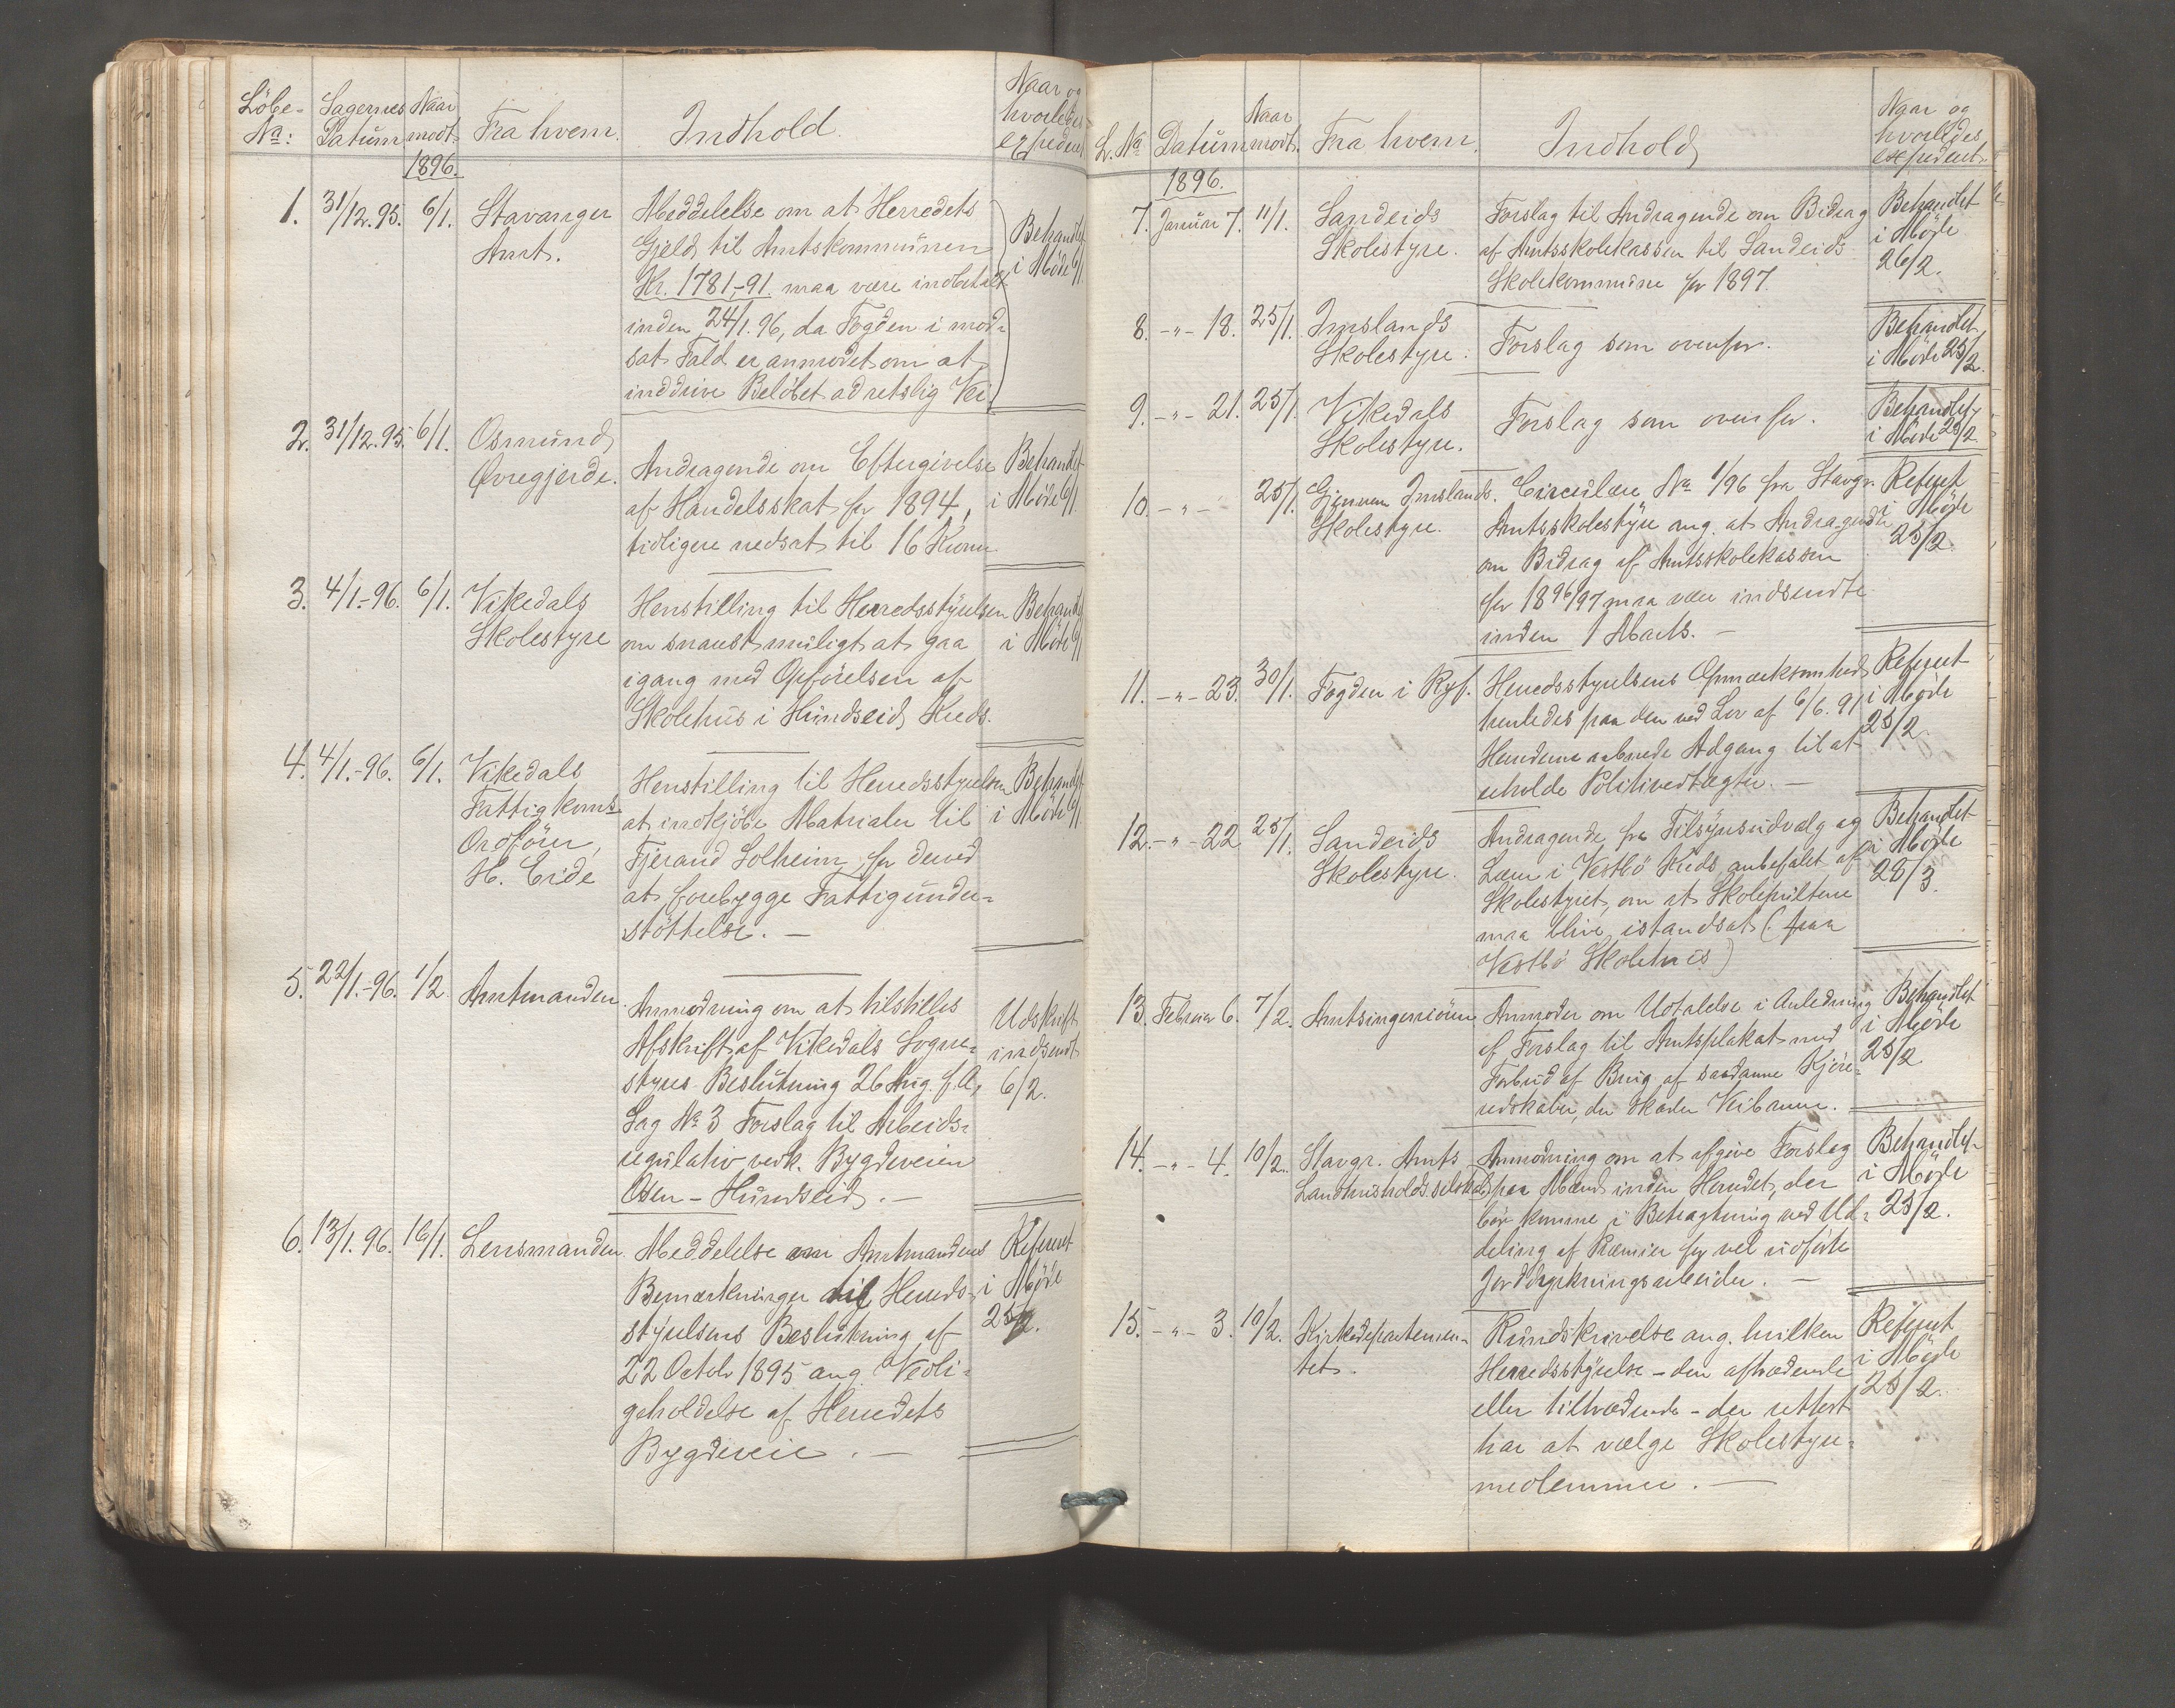 Löbe-
No:
Sagernes
Datum
Naar
modt.
Fra hvem.
Indhold.
Naar og
hvorledes
expederet
1896.
1. 31/12.95. 6/1. Stavanger
Amt.
Meddelelse om at Herredets
Gjeld til Amtskommunen
Kr. 1781,-91. maa være indbetalt
inden 24/1.96, da Fogden i mod-
sat Fald er anmodet om at
inddrive Belöbet ad retslig Vei.
Behandlet
i Möde 6/1
2. 31/12.95. 6/1. Osmund
Øvregjerde.
Andragende om Eftergivelse
af Handelsskat for 1894,
tidligere nedsat til 16 Kroner
Behandlet
i Möde 6/1
3. 4/1.-96. 6/1. Vikedals
Skolestyre
Henstilling til Herredsstyrelsen
om snarest muligt at gaa
igang med Opförelsen af
Skolehus i Hundseid Kreds.
Behandlet
i Möde 6/1
4. 4/1.-96. 6/1. Vikedals
Fattigkoms
Ordförer,
H. Eide
Henstilling til Herredsstyrelsen
at indkjöbe Matrialer til
Tjerand Solheim for derved
at forebygge Fattigunder-
stöttelse. —
Behandlet
i Möde 6/1
5. 22/1.-96. 1/2. Amtmanden.
Anmodning om at tilstilles
Afskrift af Vikedals Sogne-
styres Beslutning 26 Aug. f.A.,
Sag No 3 Forslag til Arbeids-
regulativ vedk. Bygdeveien
Ölen - Hundseid. —
Udskrift
indsendt
6/2.
6. 13/1.96. 16/1. Lensmanden.
Meddelelse om Amtmandens
Bemærkninger til Herreds-
styrelsens Beslutning af
22 Octob 1895 ang. Vedli-
geholdelse af Herredets
Bygdeveie. —
Referert
i Möde
25/2.
L. No
Datum
Naar
modt.
Fra hvem.
Indhold
Naar og
hvorledes
expederet.
1896.
7. Januar 7. 11/1. Sandeids
Skolestyre.
Forslag til Andragende om Bidrag
af Amtsskolekassen til Sandeids
Skolekommune for 1897.
Behandlet
i Möde
26/2.
8. -"- 18. 25/1. Imslands
Skolestyre.
Forslag som ovenfor.
Behandlet
i Möde 25/2.
9. -"- 21. 25/1. Vikedals
Skolestyre.
Forslag som ovenfor.
Behandlet
i Möde 25/2
10. -"- 25/1. Gjennem Imslands
Skolestyre.
Circulære No 1/96 fra Stavgr.
Amtsskolestyre ang. at Andragender
om Bidrag af Amtsskolekassen
for 1896/97 maa være indsendte
inden 1 Marts. —
Referert
i Möde
25/2.
11. -"- 23. 30/1. Fogden i Ryf.
Herredsstyrelsens Opmærksomhed
henledes paa den ved Lov af 6/6.91
Herrederne aabnede Adgang til at
erholde Politivedtægter. —
Referert
i Möde
25/2.
12. -"- 22 25/1. Sandeids
Skolestyre.
Andragende fra Tilsynsudvalg og
Lærer i Vestbö Kreds, anbefalet af
Skolestyret, om at Skolepultene
maa blive istandsat (: paa
Vestbö Skolehus)
Behandlet
i Möde
28/3.
13. Februar 6. 7/2. Amtsingeniören
Anmoder om Udtalelse i Anledning
af Forslag til Amtsplakat med
Forbud af Brug af saadanne Kjöre-
redskaber, der skader Veibanen.
Behandlet
i Möde
25/2
14. -"- 4. 10/2. Stavgr. Amts
Landhusholdsselskab
Anmodning om at afgive Forslag
paa Mænd inden Herredet, der
bör komme i Betragtning ved Ud-
deling af Præmier for vel udförte
Jorddyrkningsarbeider. —
Behandlet
i Möde
25/2.
15. -"- 3. 10/2. Kirkedepartemen-
tet.
Rundskrivelse ang. hvilken
Herredsstyrelse - den aftrædende
eller tiltrædende - der rettest
har at vælge Skolestyre-
medlemmer. —
Referert
i Möde
25/2.